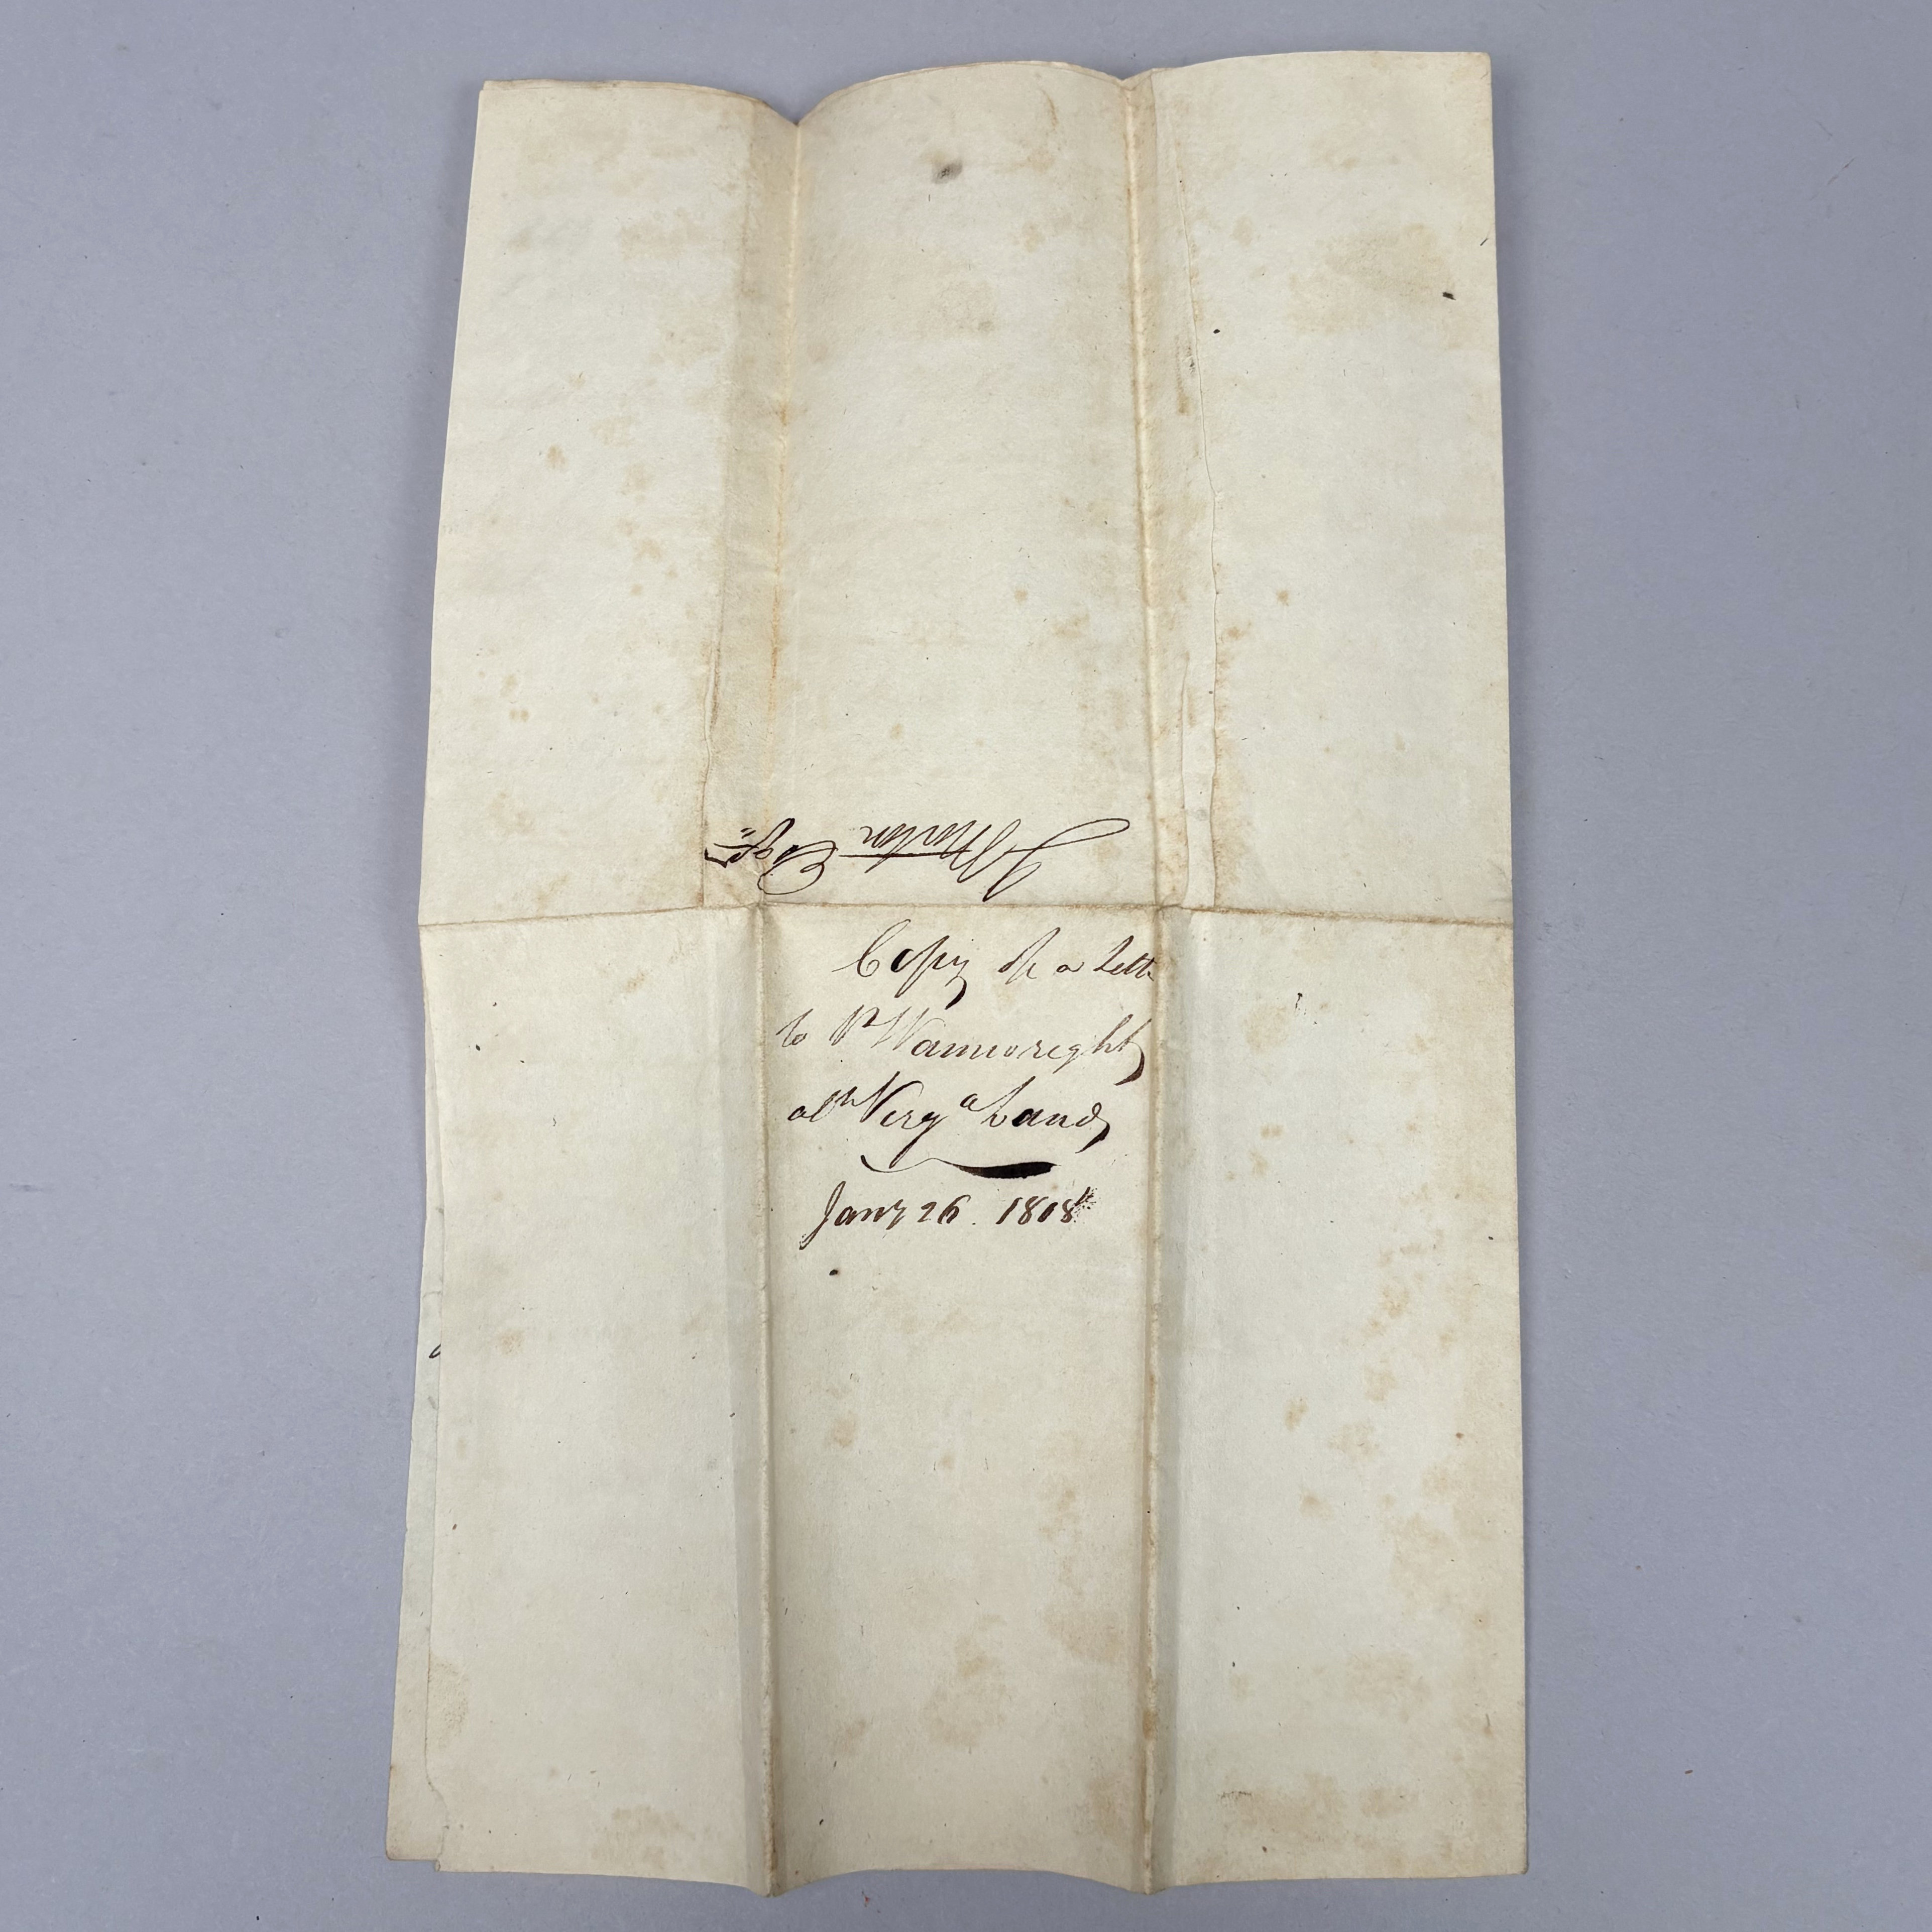 J Morton Esqr
Copy of a Lett
to P Wainwright
abt Virga Land
Jany 26. 1808